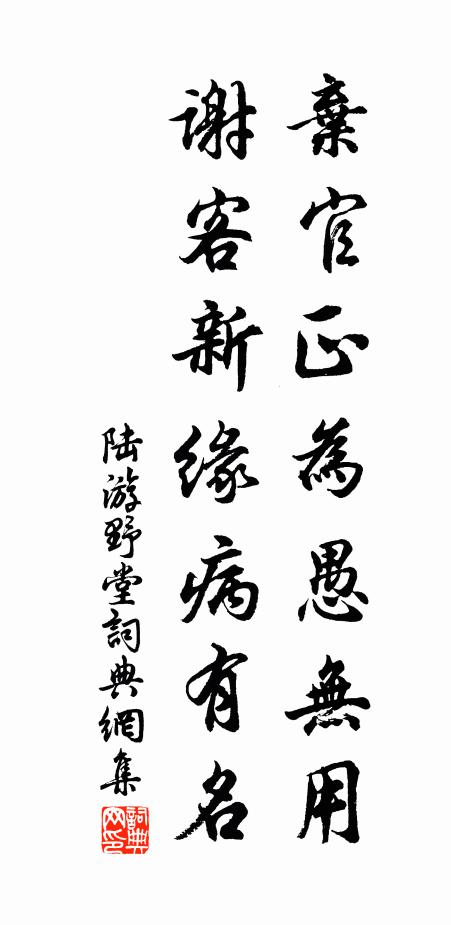 棄官正為愚無用
謝客新緣病有名
陸游野堂詞典網集
詞典网印